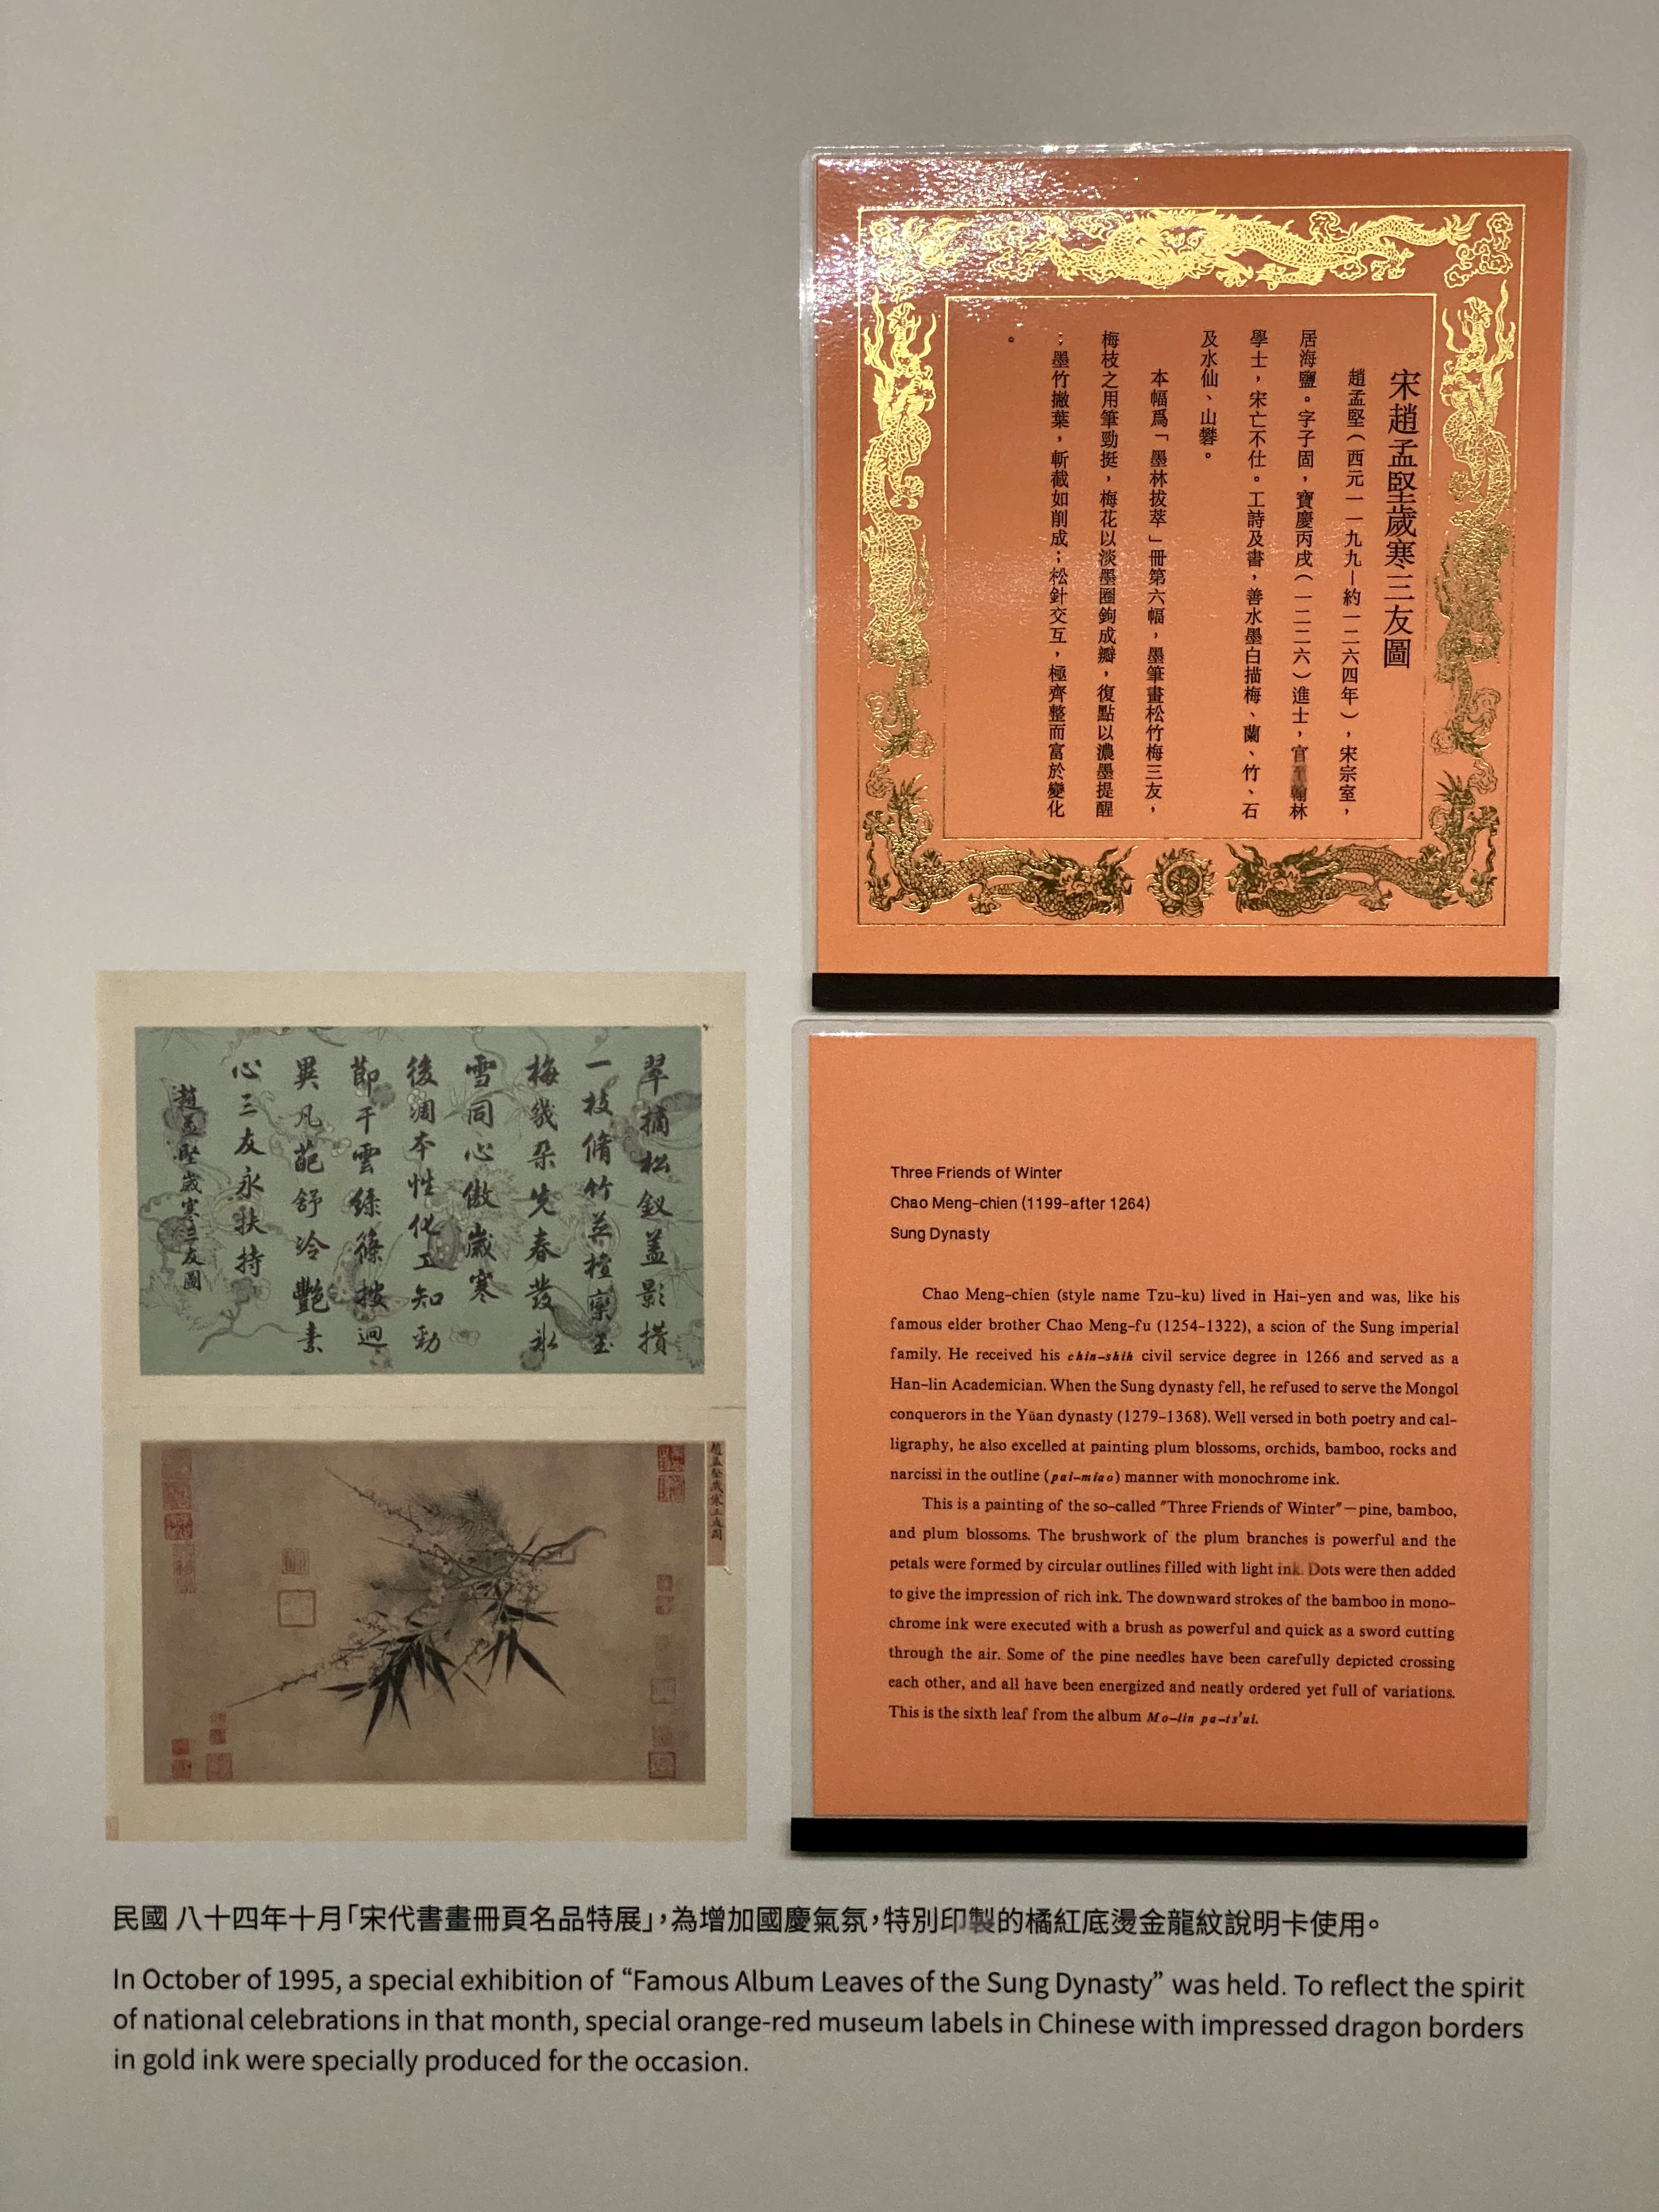 宋趙孟堅歲寒三友圖
趙孟堅(西元一一九九—約一二六四年),宋宗室,
居海鹽。字子固,寶慶丙戌(一二二六)進士,官至翰林
學士,宋亡不仕。工詩及書,善水墨白描梅、蘭、竹、石
及水仙、山礬。
本幅爲「墨林拔萃」冊第六幅,墨筆畫松竹梅三友,
梅枝之用筆勁挺,梅花以淡墨圈鉤成瓣,復點以濃墨提醒
;墨竹撇葉,斬截如削成;松針交互,極齊整而富於變化
。
翠摘松釵蓋影攢
一枝脩竹並檀欒玉
梅幾朵先春發冰
雪同心傲歲寒
後凋本性化工知勁
節干雲綠篠披迥
異凡葩舒冷艷素
心三友永扶持
趙孟堅歲寒三友圖
趙孟堅歲寒三友圖
Three Friends of Winter
Chao Meng-chien (1199-after 1264)
Sung Dynasty
Chao Meng-chien (style name Tzu-ku) lived in Hai-yen and was, like his
famous elder brother Chao Meng-fu (1254-1322), a scion of the Sung imperial
family. He received his chin-shih civil service degree in 1266 and served as a
Han-lin Academician. When the Sung dynasty fell, he refused to serve the Mongol
conquerors in the Yüan dynasty (1279-1368). Well versed in both poetry and cal-
ligraphy, he also excelled at painting plum blossoms, orchids, bamboo, rocks and
narcissi in the outline (pai-miao) manner with monochrome ink.
This is a painting of the so-called "Three Friends of Winter"—pine, bamboo,
and plum blossoms. The brushwork of the plum branches is powerful and the
petals were formed by circular outlines filled with light ink. Dots were then added
to give the impression of rich ink. The downward strokes of the bamboo in mono-
chrome ink were executed with a brush as powerful and quick as a sword cutting
through the air. Some of the pine needles have been carefully depicted crossing
each other, and all have been energized and neatly ordered yet full of variations.
This is the sixth leaf from the album Mo-lin pa-ts'ui.
民國 八十四年十月「宋代書畫冊頁名品特展」,為增加國慶氣氛,特別印製的橘紅底燙金龍紋說明卡使用。
In October of 1995, a special exhibition of “Famous Album Leaves of the Sung Dynasty” was held. To reflect the spirit
of national celebrations in that month, special orange-red museum labels in Chinese with impressed dragon borders
in gold ink were specially produced for the occasion.